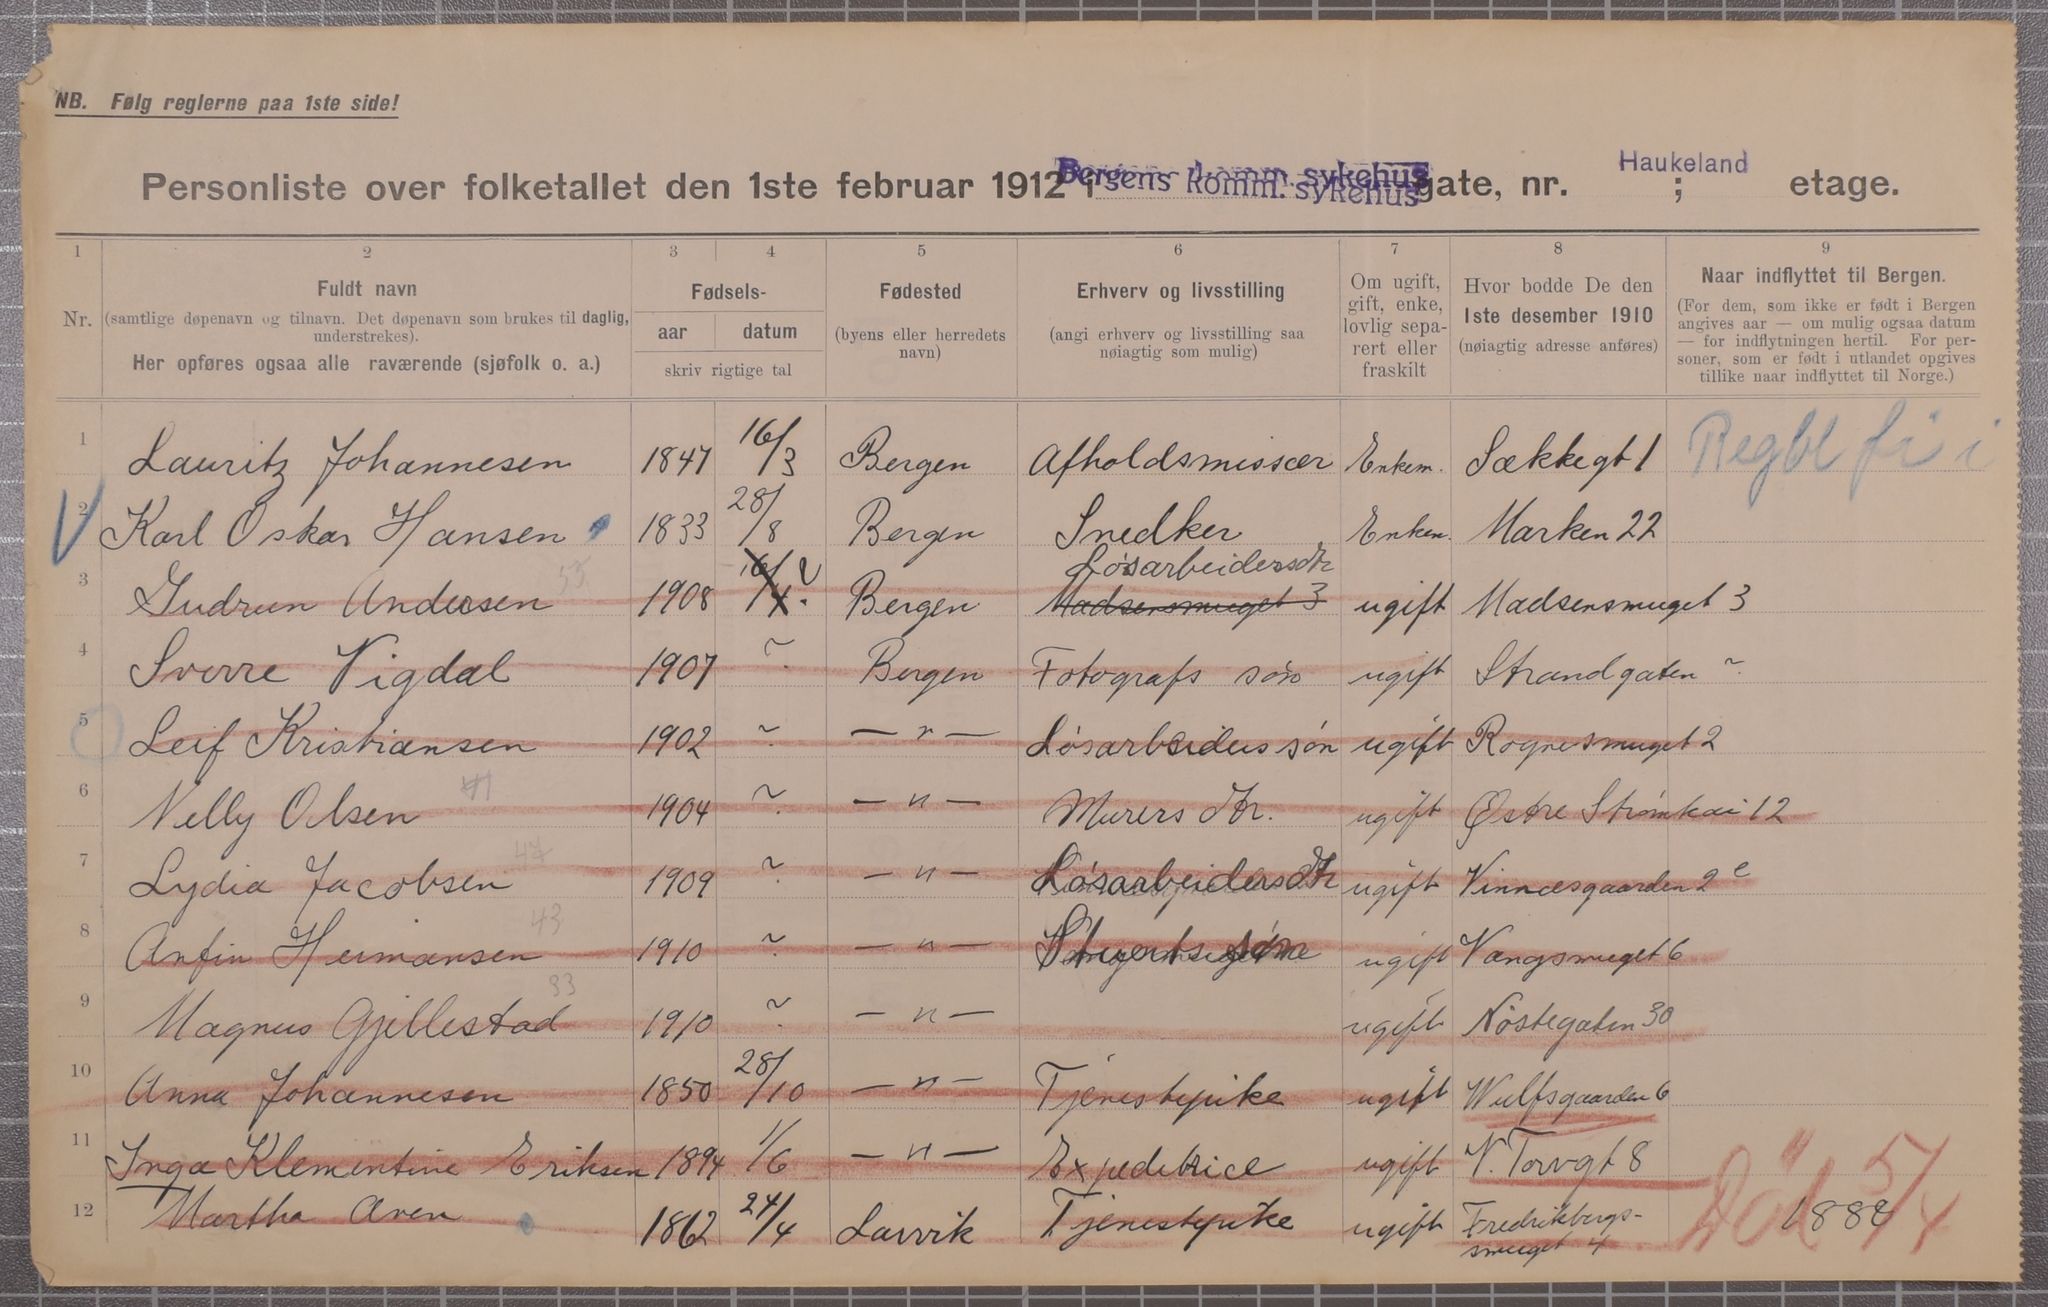 NB. Følg reglerne paa 1ste side!
Personliste over folketallet den 1ste februar 1912 i Bergens komm. sykehus gate, nr. Haukeland ; etage.
1 2 3 4 5 6 7 8 9
Nr.
Fuldt navn
(samtlige døpenavn og tilnavn. Det døpenavn som brukes til daglig, understrekes).
Her opføres ogsaa alle raværende (sjøfolk o. a.)
Fødsels-
aar datum
skriv rigtige tal
Fødested
(byens eller herredets navn)
Erhverv og livsstilling
(angi erhverv og livsstilling saa nøiagtig som mulig)
Om ugift, gift, enke, lovlig separert eller fraskilt
Hvor bodde De den 1ste desember 1910
(nøiagtig adresse anføres)
Naar indflyttet til Bergen.
(For dem, som ikke er født i Bergen angives aar — om mulig ogsaa datum — for indflytningen hertil. For personer, som er født i utlandet opgives tillike naar indflyttet til Norge.)
1 Lauritz Johannesen 1847 16/3 Bergen Afholdsmissær Enkem. Sækkegt 1
2 Karl Oskar Hansen 1833 28/8 Bergen Snedker Enkem. Marken 22
3 Gudrun Andersen 1908 16/4 ? Bergen Løsarbeidersdtr Madsensmuget 3 ugift Madsensmuget 3
4 Sverre Vigdal 1907 ~ Bergen Fotografs søn ugift Strandgaten ~
5 Leif Kristiansen 1902 ~ — " — Løsarbeiders søn ugift Rognesmuget 2
6 Nelly Olsen 1904 ~ — " — Murers dtr. ugift Østre Strømkai 12
7 Lydia Jacobsen 47 1909 ~ — " — Løsarbeidersdtr ugift Vinnæsgaarden 2 c
8 Anfin Hermansen 43 1910 ~ — " — Stuerts søn ugift Vangsmuget 6
9 Magnus Gjellestad 33 1910 ~ — " — ugift Nøstegaten 30
10 Anna Johannesen 1850 28/10 — " — Tjenestepike ugift Wulfsgaarden 6
11 Inga Klementine Eriksen 1894 1/6 — " — Expeditrice ugift V. Torvgt 8
12 Martha Aven 1862 24/4 Lavvik Tjenestepike ugift Fredrikbergs-
smuget 4 1888
Død 5/4